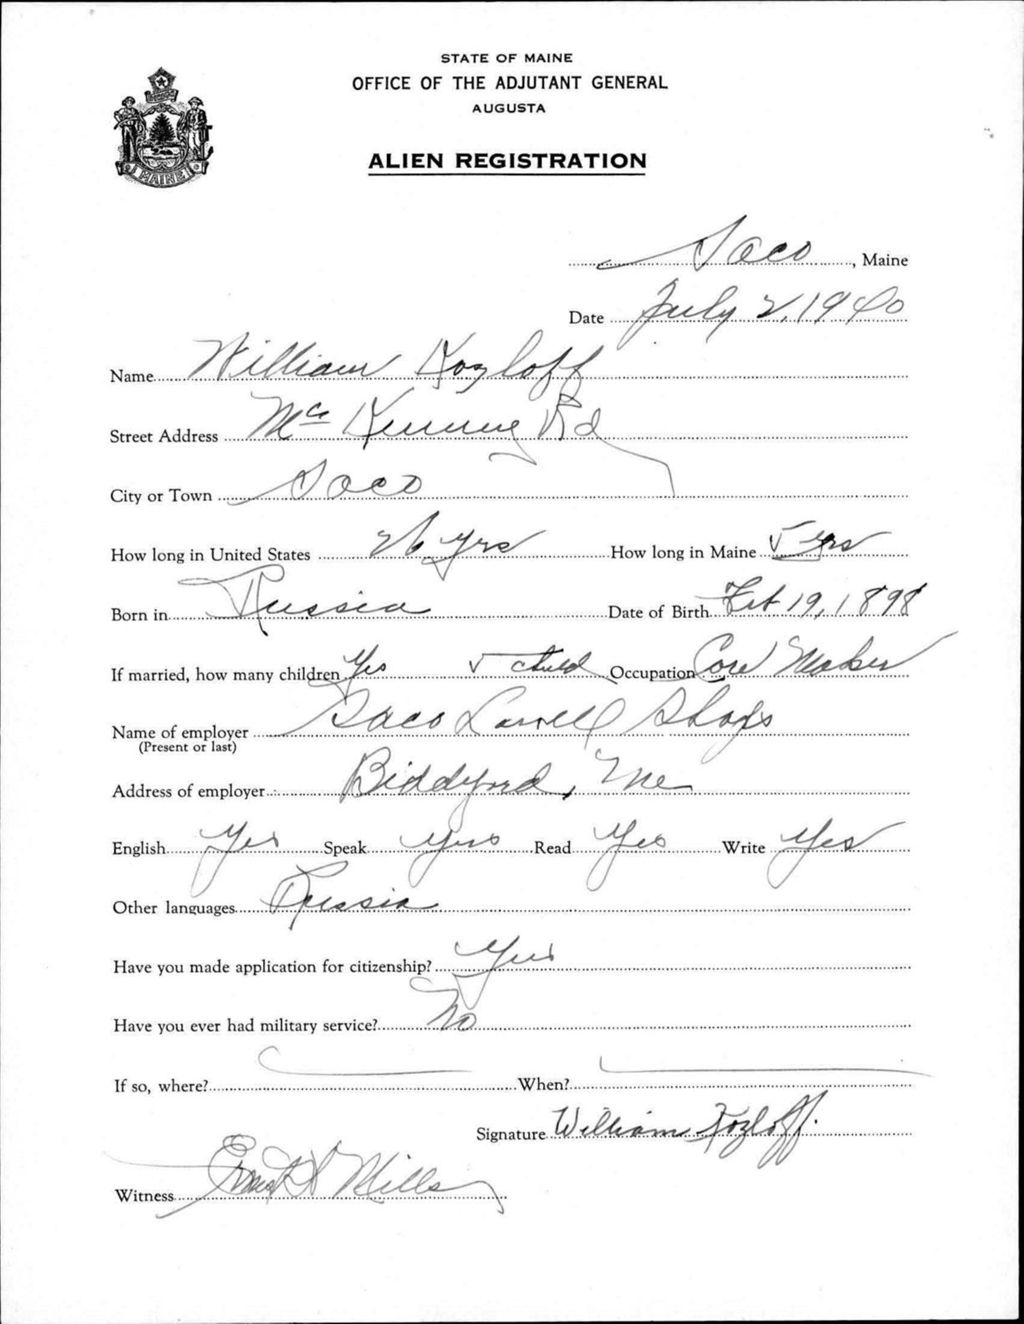 STATE OF MAINE
OFFICE OF THE ADJUTANT GENERAL
AUGUSTA
MAINE
ALIEN REGISTRATION
Saco, Maine
Date July 2, 1940
Name William Kozloff
Street Address Mc Kenney Rd
City or Town Saco
How long in United States 26 yrs How long in Maine 5 yrs
Born in Russia Date of Birth Feb 19, 1898
If married, how many children Yes 5 child Occupation Core Maker
Name of employer Saco Lowell Shops
(Present or last)
Address of employer Biddeford, Me
English Yes Speak Yes Read Yes Write Yes
Other languages Russia
Have you made application for citizenship? Yes
Have you ever had military service? No
If so, where? When?
Signature William Kozloff.
Witness Mills